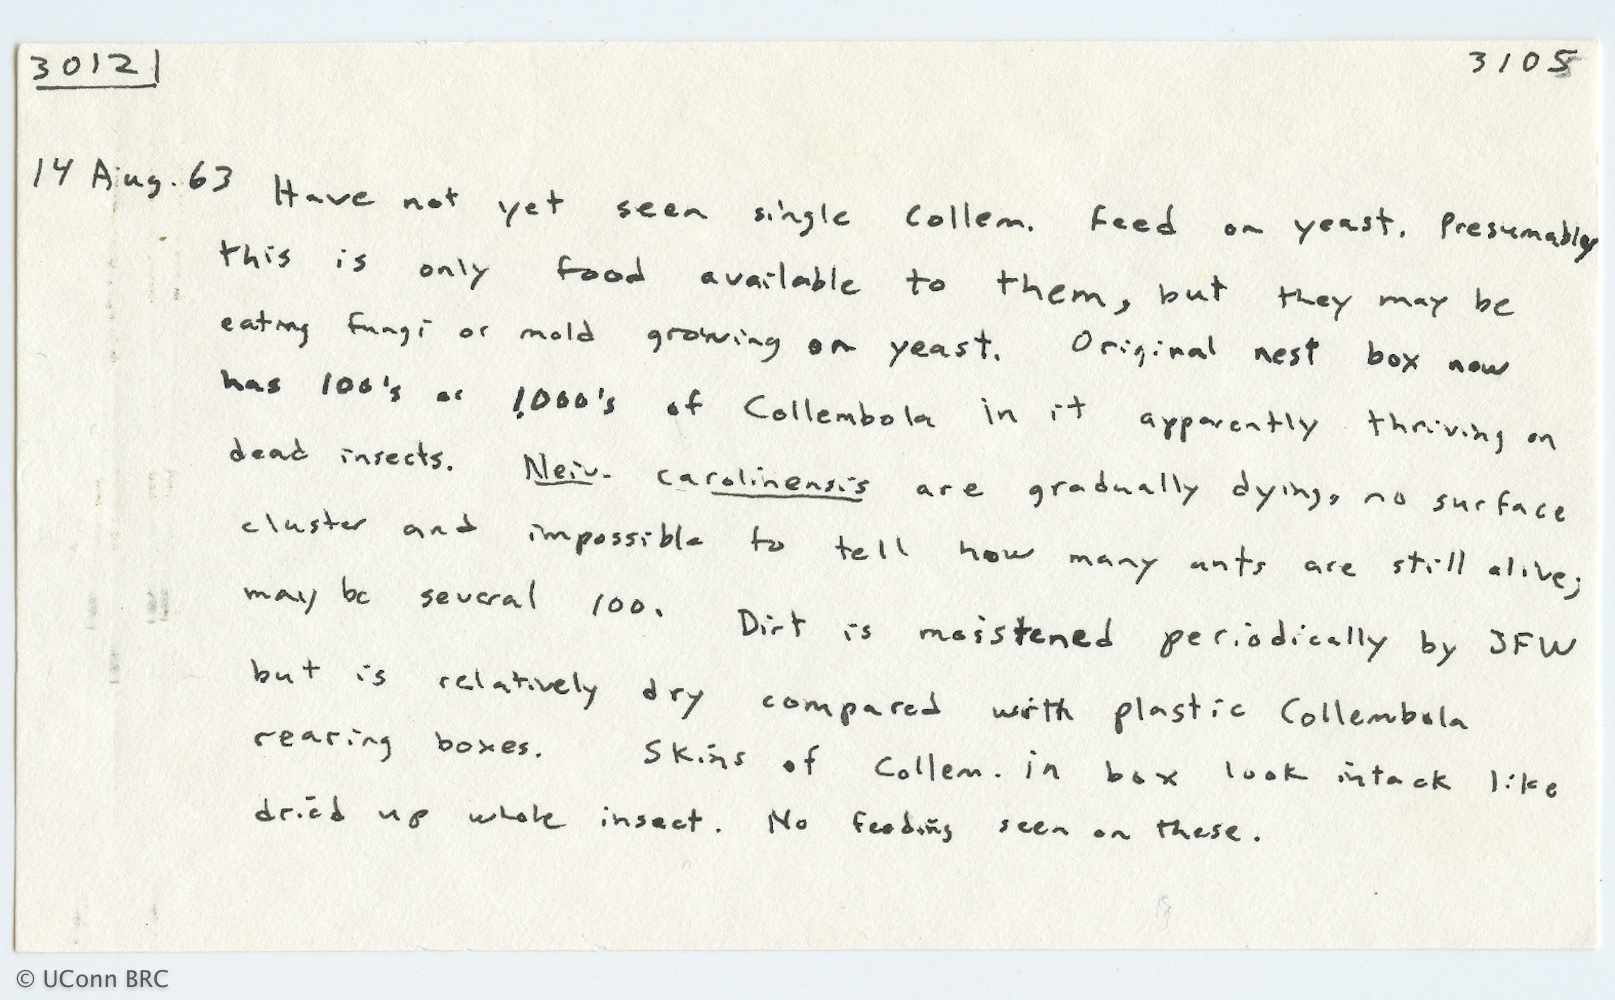 3012 3105
14 Aug. 63 Have not yet seen single Collem. feed on yeast. Presumably
this is only food available to them, but they may be
eating fungi or mold growing on yeast. Original nest box now
has 100's or 1,000's of Collembola in it apparently thriving on
dead insects. Neiv. carolinensis are gradually dying, no surface
cluster and impossible to tell how many ants are still alive;
may be several 100. Dirt is moistened periodically by JFW
but is relatively dry compared with plastic Collembola
rearing boxes. Skins of Collem. in box look intack like
dried up whole insect. No feeding seen on these.
© UConn BRC